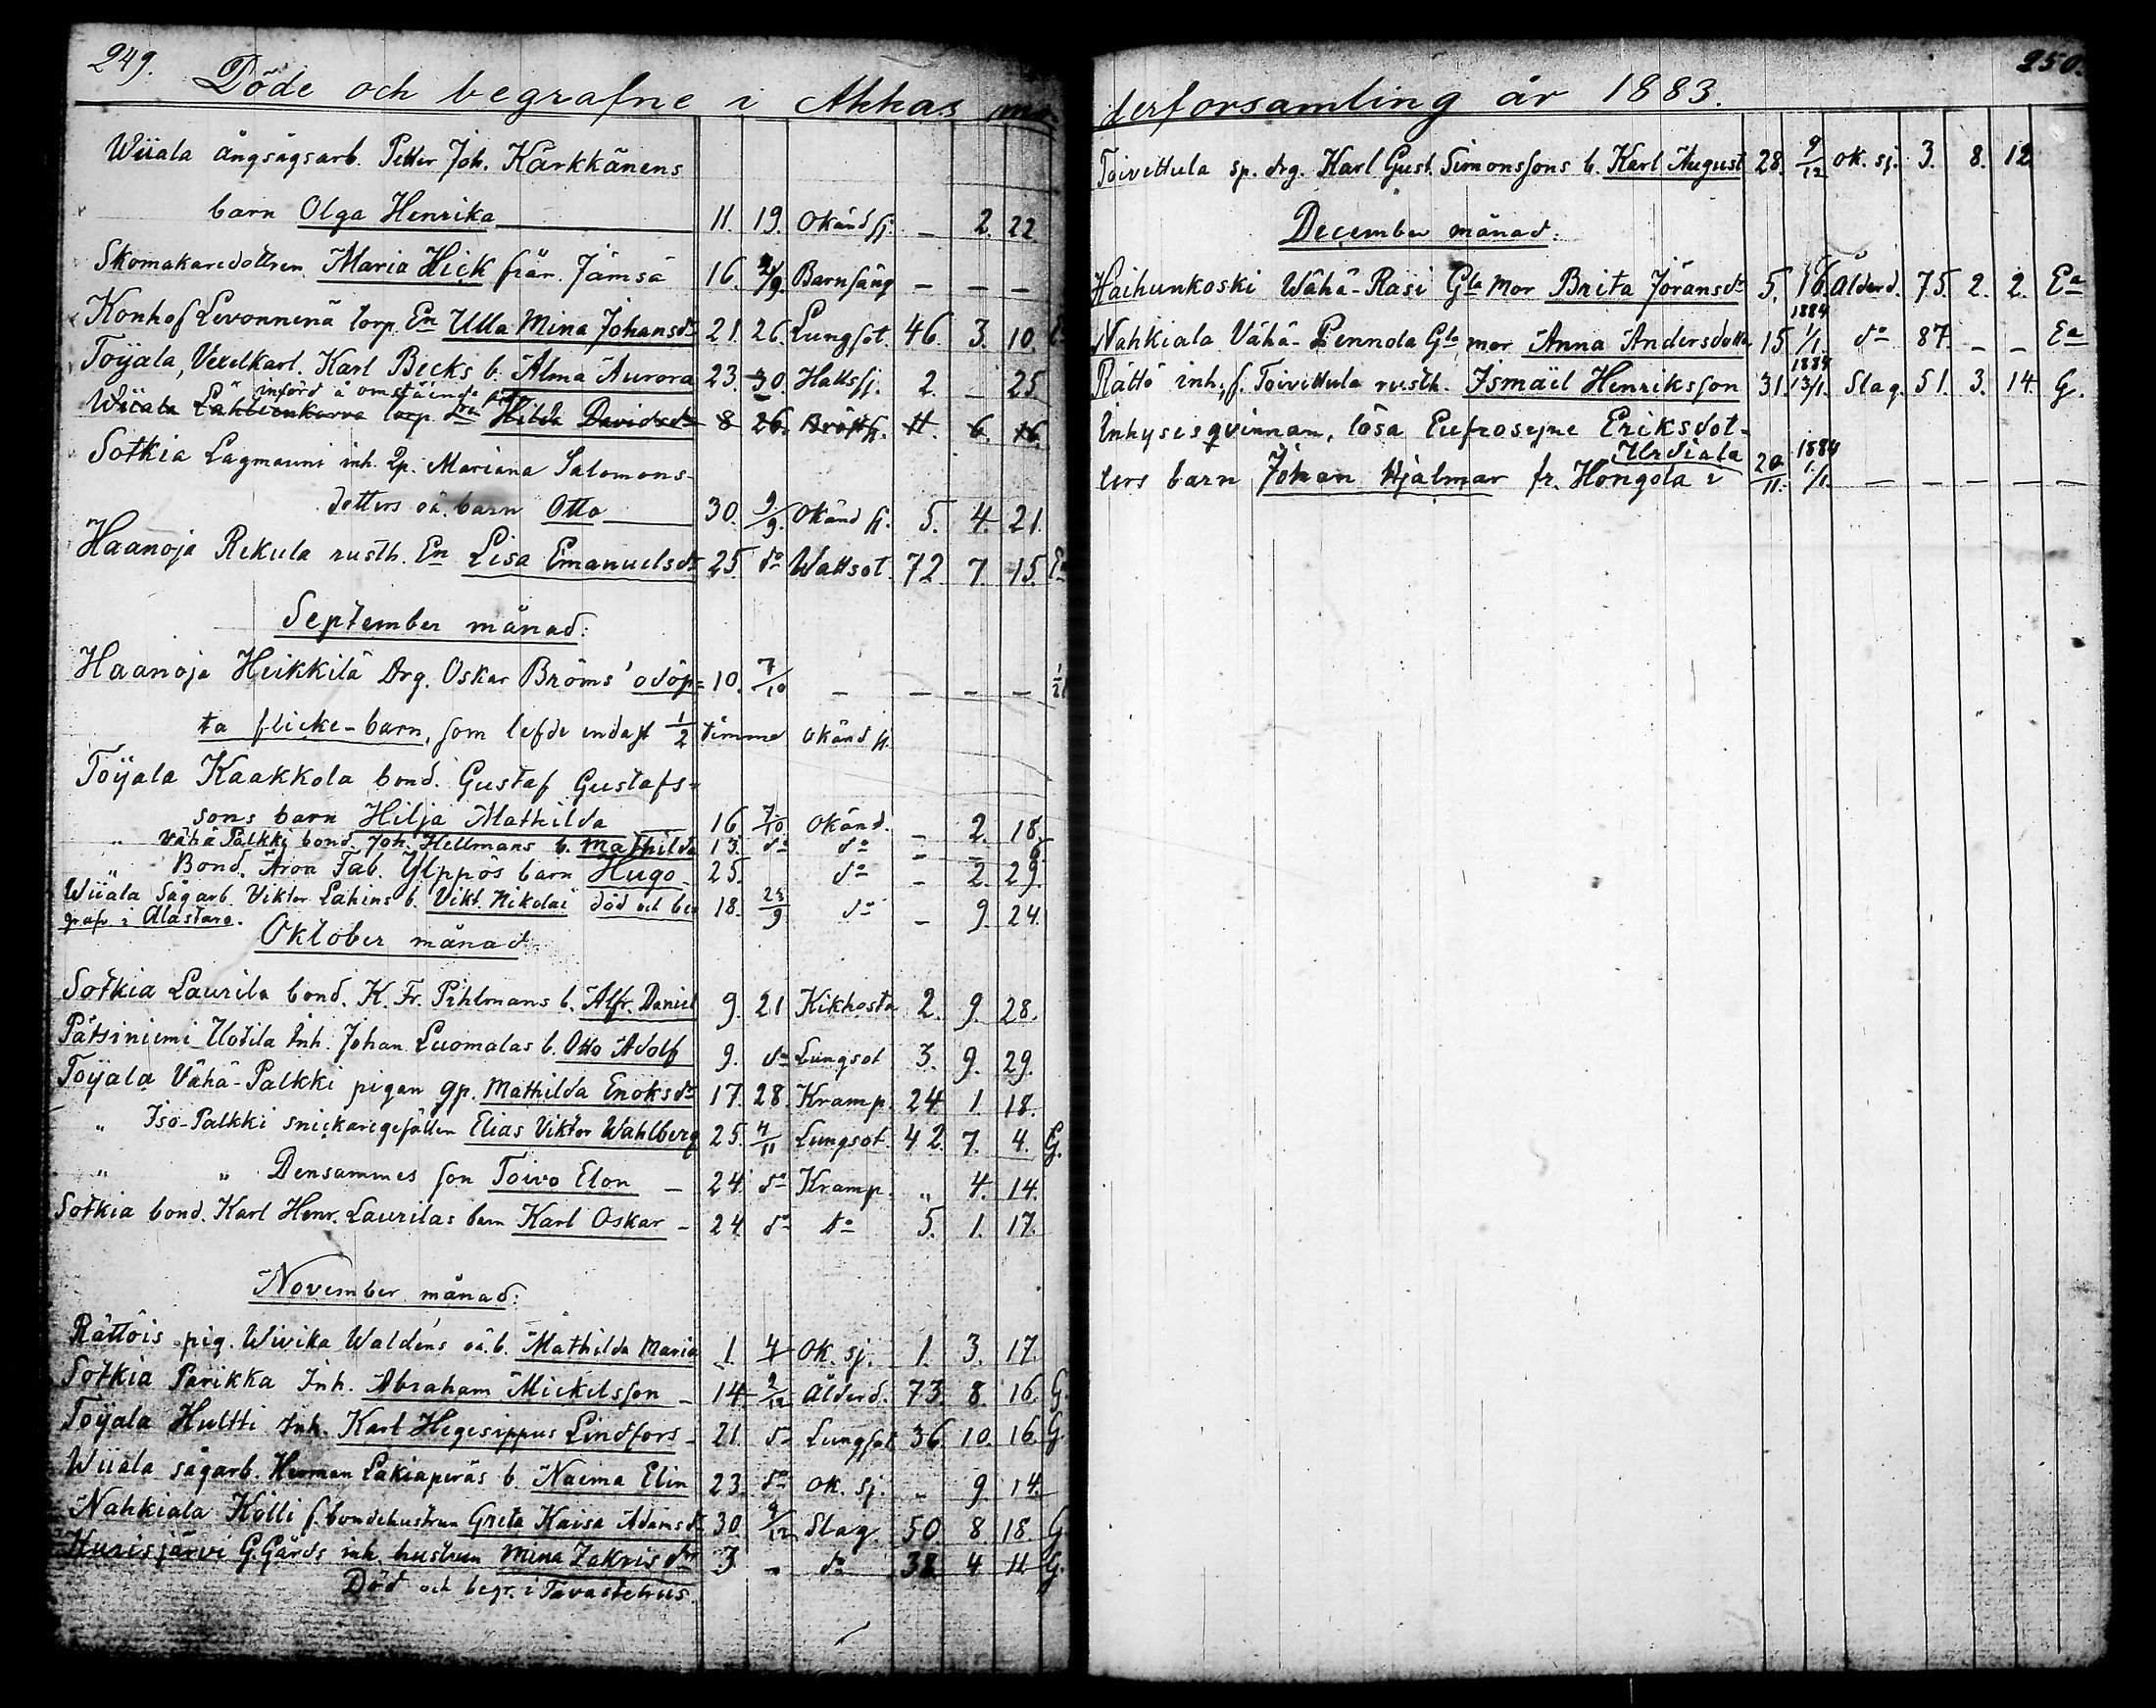 249.
Döde och begrafne i Akkas mo-
Wiiala ångsågsarb. Petter Joh. Kärkkänens
barn Olga Henrika 11. 19. Okänd sj. — 2. 22.
Skomakaredottren Maria Hick från Jämsä 16. 2/9. Barnsäng — — —
Konhof Levonnenä torp. En Ulla Mina Johansdr 21. 26. Lungsot. 46. 3. 10.
Toijala, Vexelkarl. Karl Becks b. Alma Aurora 23. 30. Halssj. 2. — 25
införd å omstående
Wiiala torp. Hilda Davidsdr 8 26. 11. 6. 16.
Sotkia Lagmanni inh. Qp. Mariana Salomons-
dotters oä. barn Otto 30. 9/9. Okänd sj. 5. 4. 21.
Haanoja Rekula rusth. En Lisa Emanuelsdr 25. do Wattsot. 72. 7. 15. En
September månad:
Haanoja Heikkilä drg. Oskar Bröms' odöp- 10. 7/10 — — — —
ta flicke-barn, som lefde endast 1/2 timme okänd sj.
Toijala Kaakkola bond. Gustaf Gustafs-
sons barn Hilja Mathilda 16 7/10. Okänd. — 2. 18.
" Vähä Palkki bond. Joh. Hellmans b. Mathilda 13. do do — — 6.
" Bond. Aron Fab. Ylppös barn Hugo 25. do — 2. 29.
Wiiala Sågarb. Viktor Lahins b. Vikt. Nikolai död och be- 18. 23/9 do — 9. 24.
graf. i Alastaro.
Oktober månad.
Sotkia Laurila bond. K. Fr. Pihlmans b. Alfr. Daniel 9. 21 Kikhosta 2. 9. 28.
Pätsiniemi Uotila Inh. Johan Luomalas b. Otto Adolf 9. do Lungsot 3. 9. 29.
Toijala Vähä-Palkki pigan qp. Mathilda Enoksdr 17. 28. Kramp. 24 1. 18.
" Iso-Palkki snickaregesällen Elias Viktor Wahlberg 25. 4/11 Lungsot. 42. 7. 4. G.
" " Densammes son Toivo Elon — 24 do Kramp. " 4. 14.
Sotkia bond. Karl Henr. Laurilas barn Karl Oskar — 24 do do 5. 1. 17.
November månad:
Rättöis pig. Wivika Waldéns oä. b. Mathilda Maria 1. 4 Ok. sj. 1. 3. 17.
Sotkia Parikka Inh. Abraham Mickelsson — 14 2/12 Ålderd. 73. 8. 16. G.
Toijala Hultti Inh. Karl Hegesippus Lindfors — 21. do Lungsot 36. 10. 16. G
Wiiala sågarb. Herman Lakiaperäs b. Naema Elin 23. do ok. sj. — 9. 14.
Nahkiala Kölli f. bondehustrun Greta Kaisa Adamsdr 30. 9/12 Slag. 50. 8. 18. G.
Kurisjärvi G. Gårds inh. hustrun Mina Zakrisdr 3 — do 38. 4 11 G.
Död och begr. i Tavastehus.
250.
derforsamling år 1883.
Toivettula sp. drg. Karl Gust. Simonssons b. Karl August 28. 9/12 ok. sj. 3. 8. 12
December månad:
Haihunkoski Wähä-Rasi Gla Mor Brita Jöransdr 5. 16. Ålderd. 75. 2. 2. Ea
Nahkiala Vähä-Pennola Gla mor Anna Andersdotter 15 1884 1/1. do 87. — — Ea
Rättö inh., f. Toivittula rusth. Ismaël Henriksson 31. 1884 13/1. Slag. 51. 3. 14. G.
Inhysesqvinnan, lösa Eufrosyne Eriksdot-
Urdiala
ters barn Johan Hjalmar fr. Hongola i 20/11. 1884 1/1. — — — — —